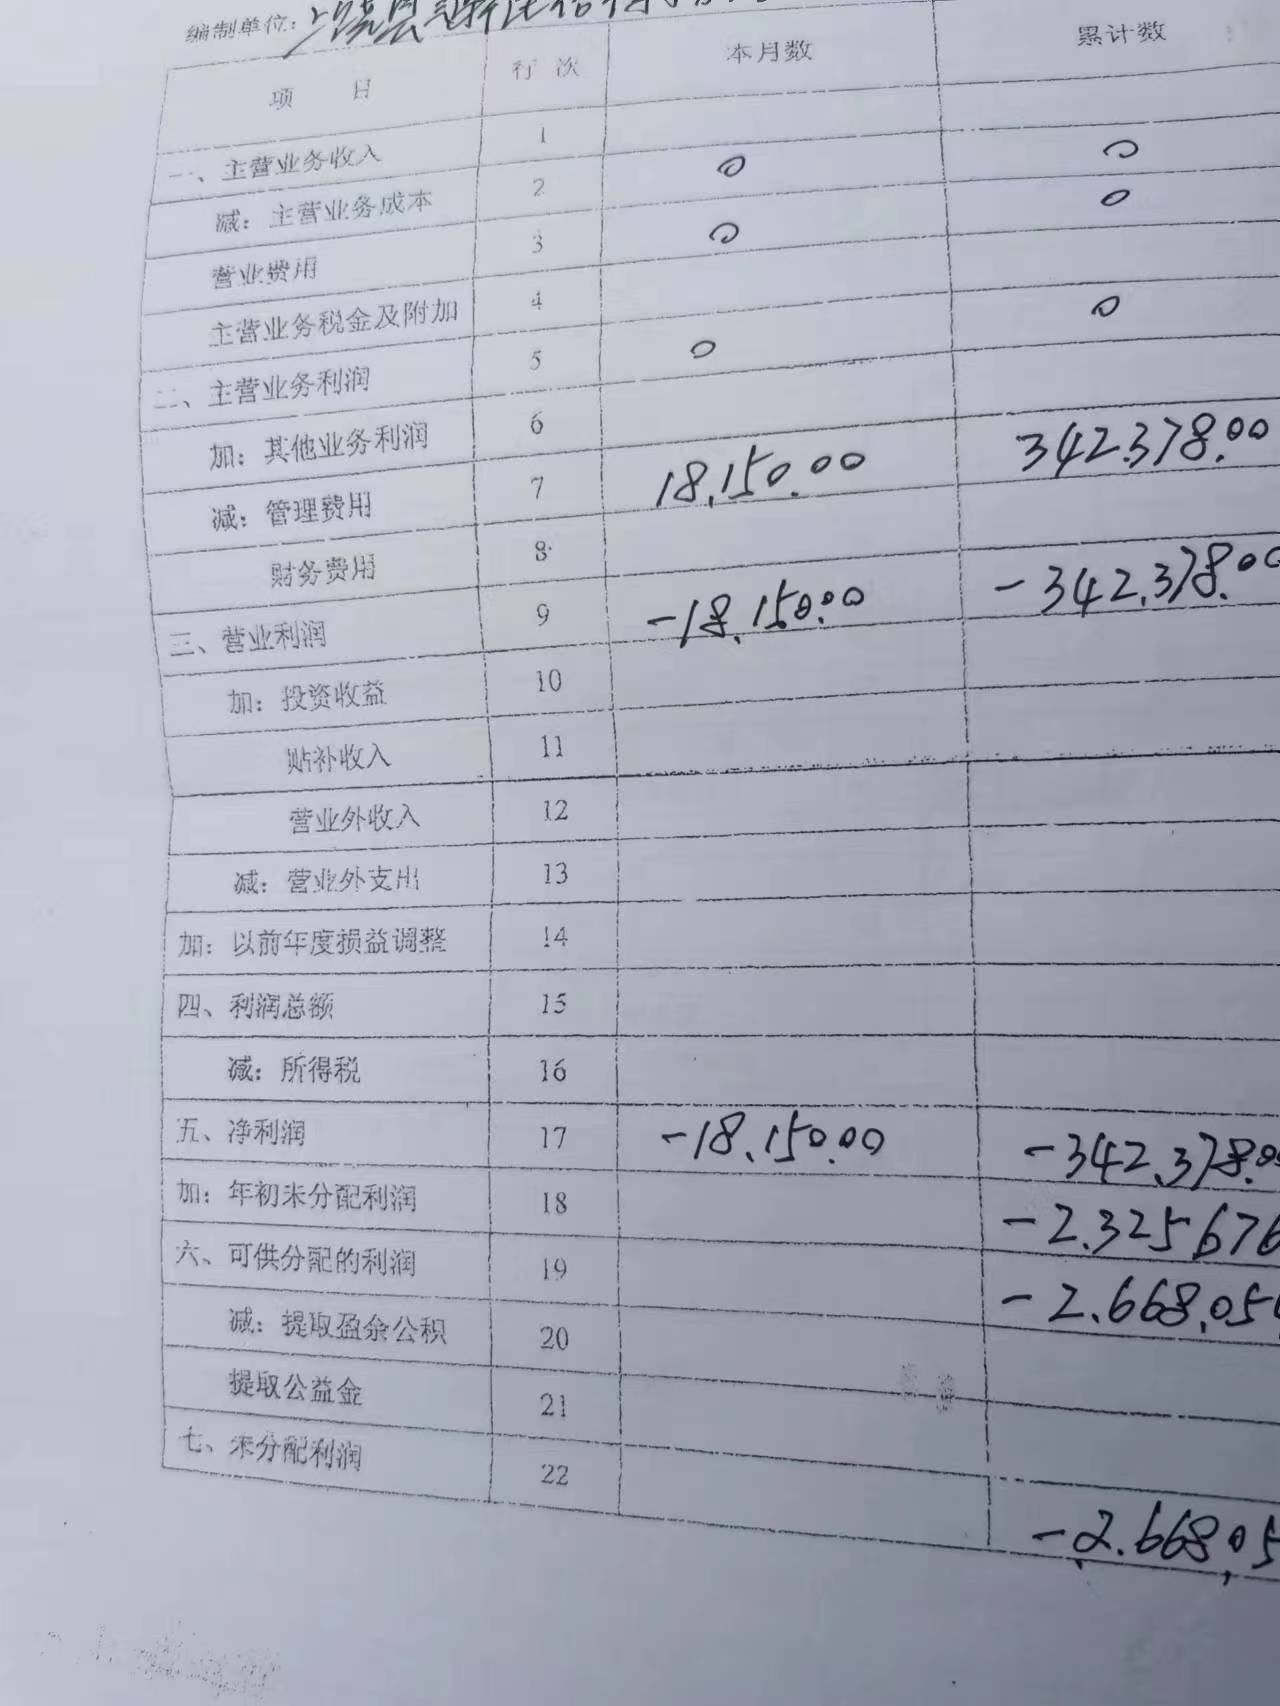 编制单位：上饶县
项 目 行 次 本月数 累计数
一、主营业务收入 1 0 0
减：主营业务成本 2 0 0
营业费用 3
主营业务税金及附加 4 0 0
二、主营业务利润 5
加：其他业务利润 6
减：管理费用 7 18,150.00 342,378.00
财务费用 8
三、营业利润 9 -18,150.00 -342,378.00
加：投资收益 10
贴补收入 11
营业外收入 12
减：营业外支出 13
加：以前年度损益调整 14
四、利润总额 15
减：所得税 16
五、净利润 17 -18,150.00 -342,378.00
加：年初未分配利润 18 -2.325676
六、可供分配的利润 19 -2.668,05
减：提取盈余公积 20
提取公益金 21
七、未分配利润 22 -2.668,05